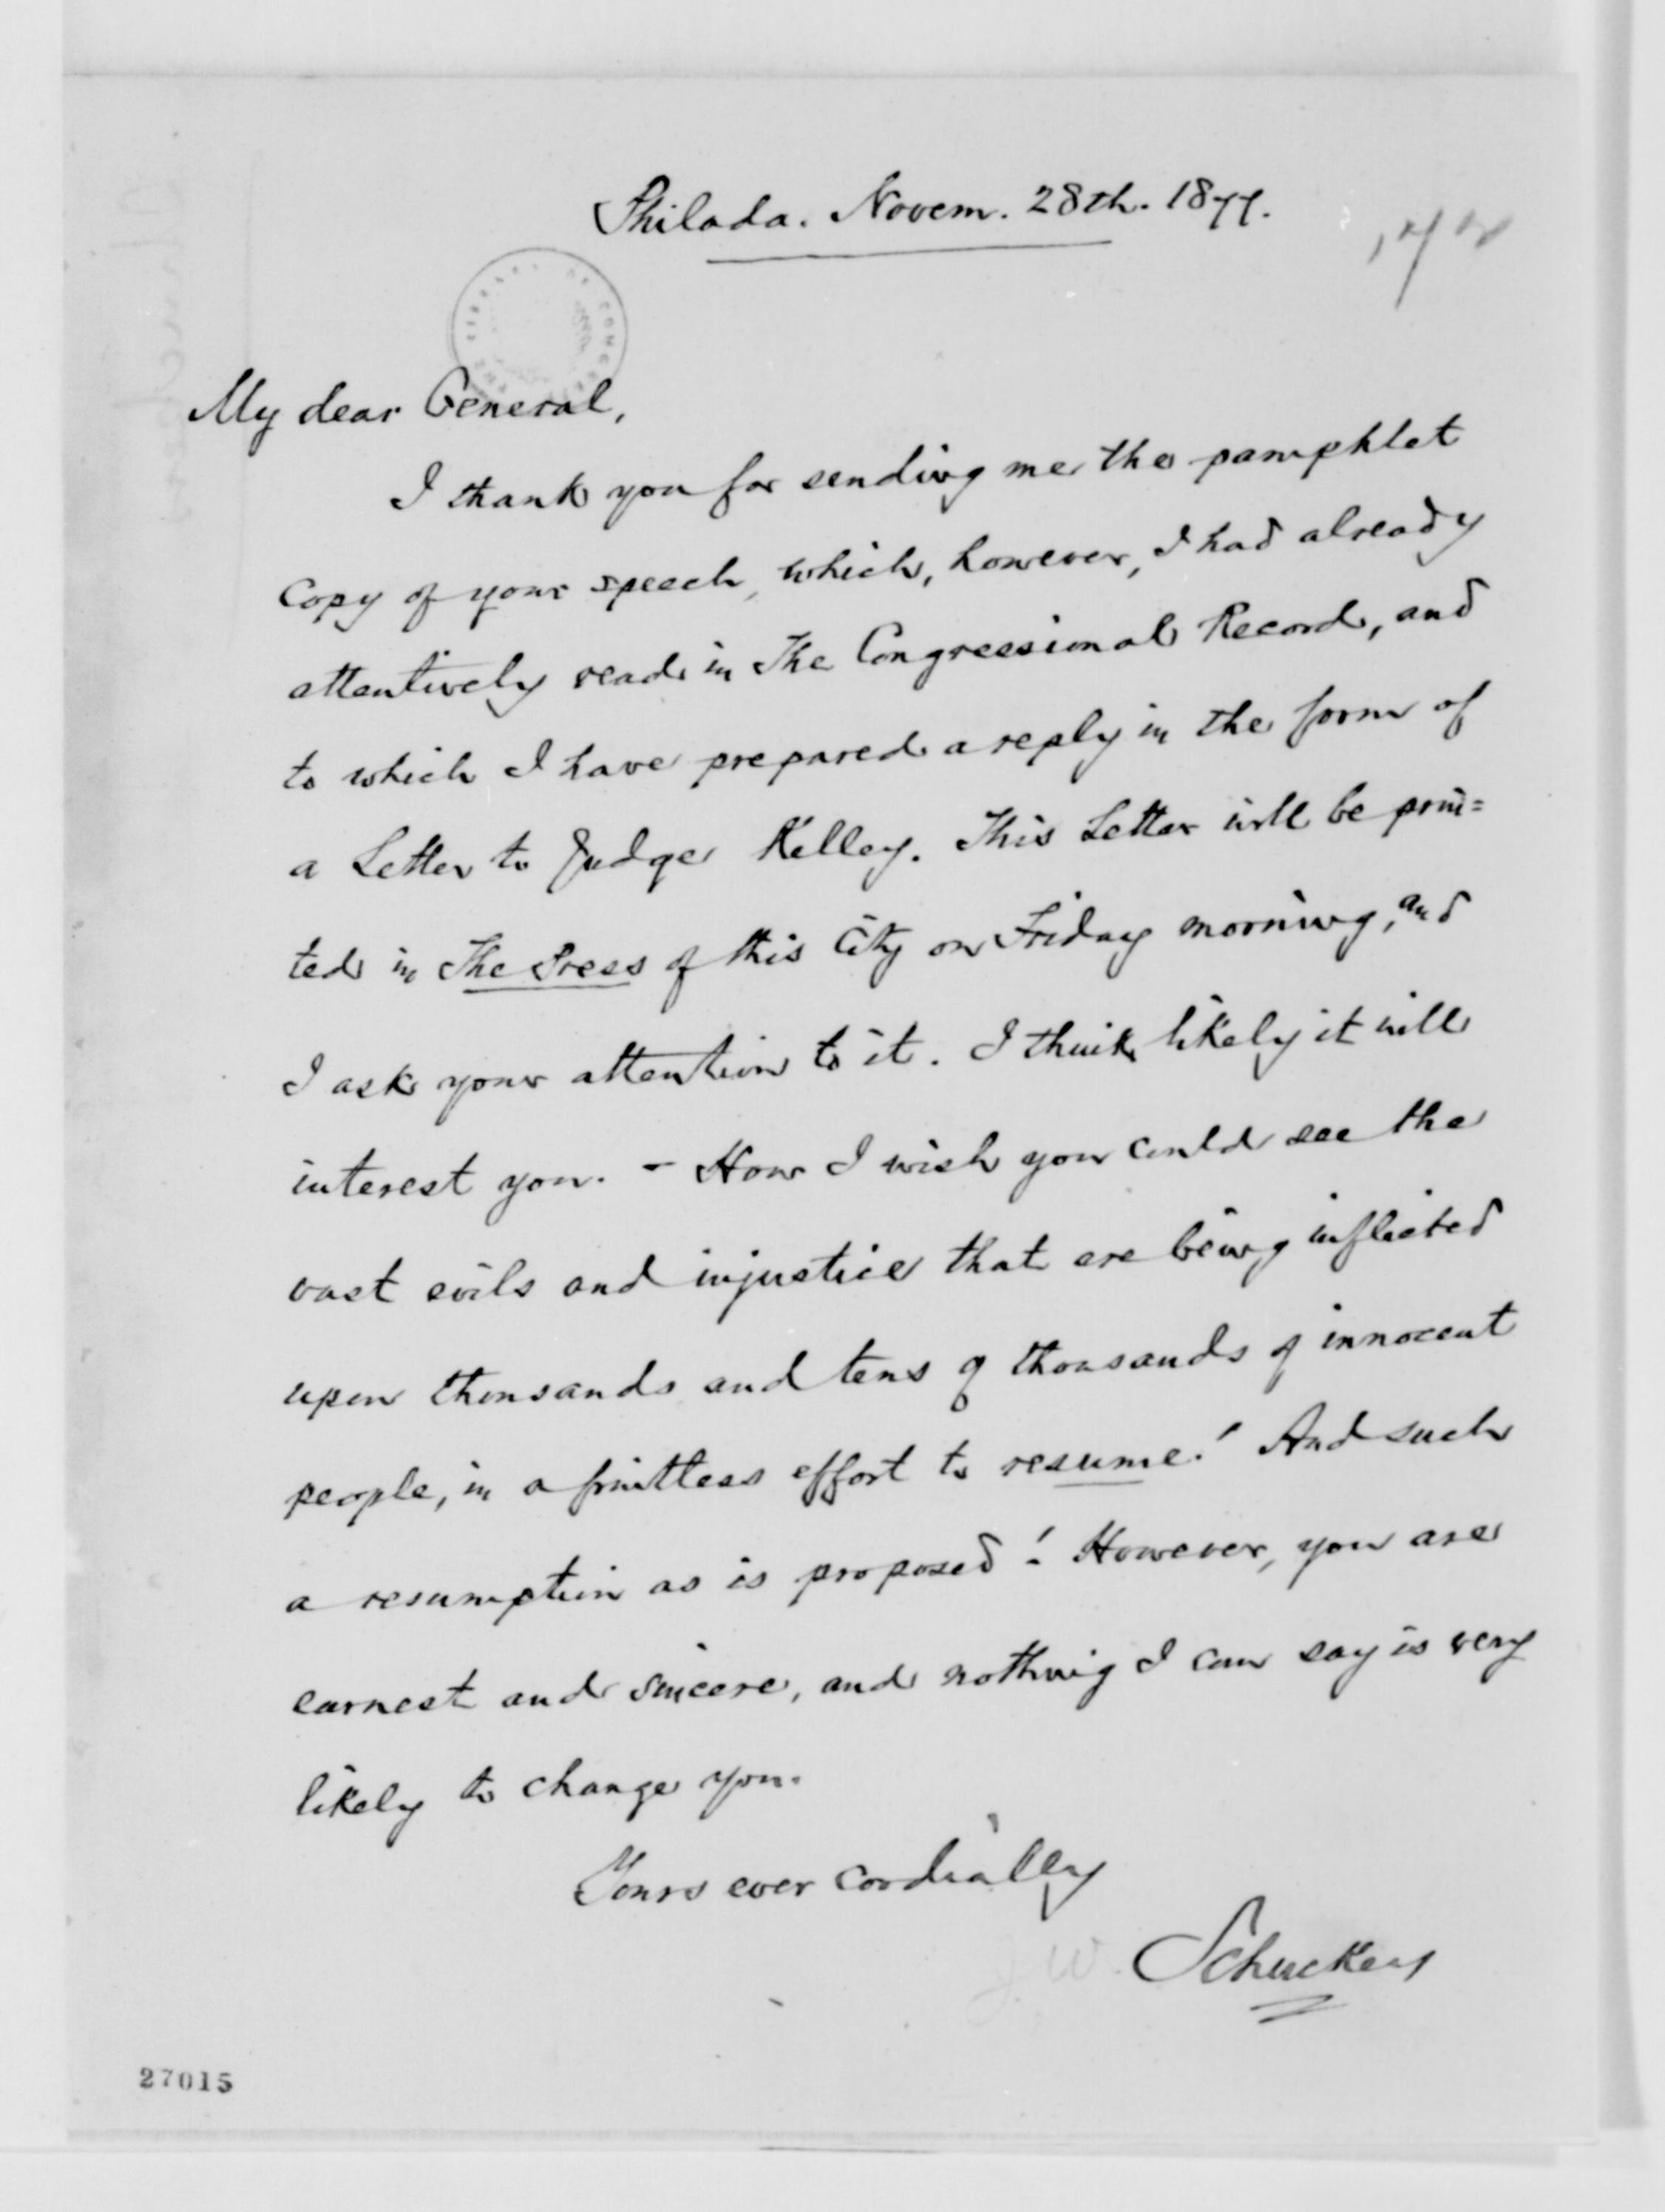 Philada. Novem. 28th. 1877.
My dear General,
I thank you for sending me the pamphlet
copy of your speech, which, however, I had already
attentively read in The Congressional Record, and
to which I have prepared a reply in the form of
a Letter to Judge Kelley. This Letter will be prin=
ted in The Press of this City on Friday morning, and
I ask your attention to it. I think likely it will
interest you. - How I wish you could see the
vast evils and injustice that are being inflicted
upon thousands and tens of thousands of innocent
people, in a fruitless effort to resume! And such
a resumption as is proposed! However, you are
earnest and sincere, and nothing I can say is very
likely to change you.
Yours ever cordially
J. W. Schuckers
27015